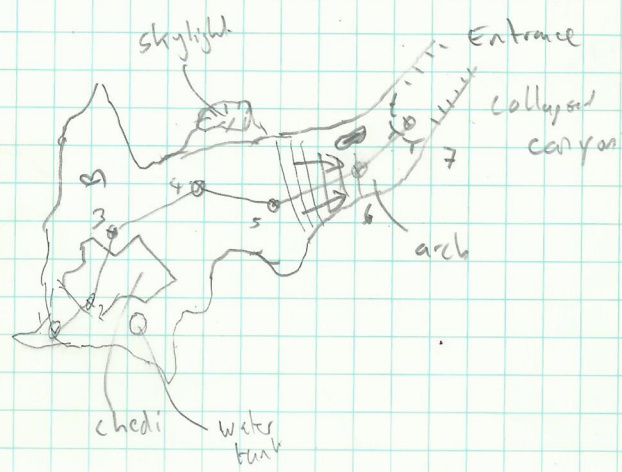 skylight
Entrance
collapsed
canyon
7
4
3
5
6
arch
1
2
chedi
water
tank